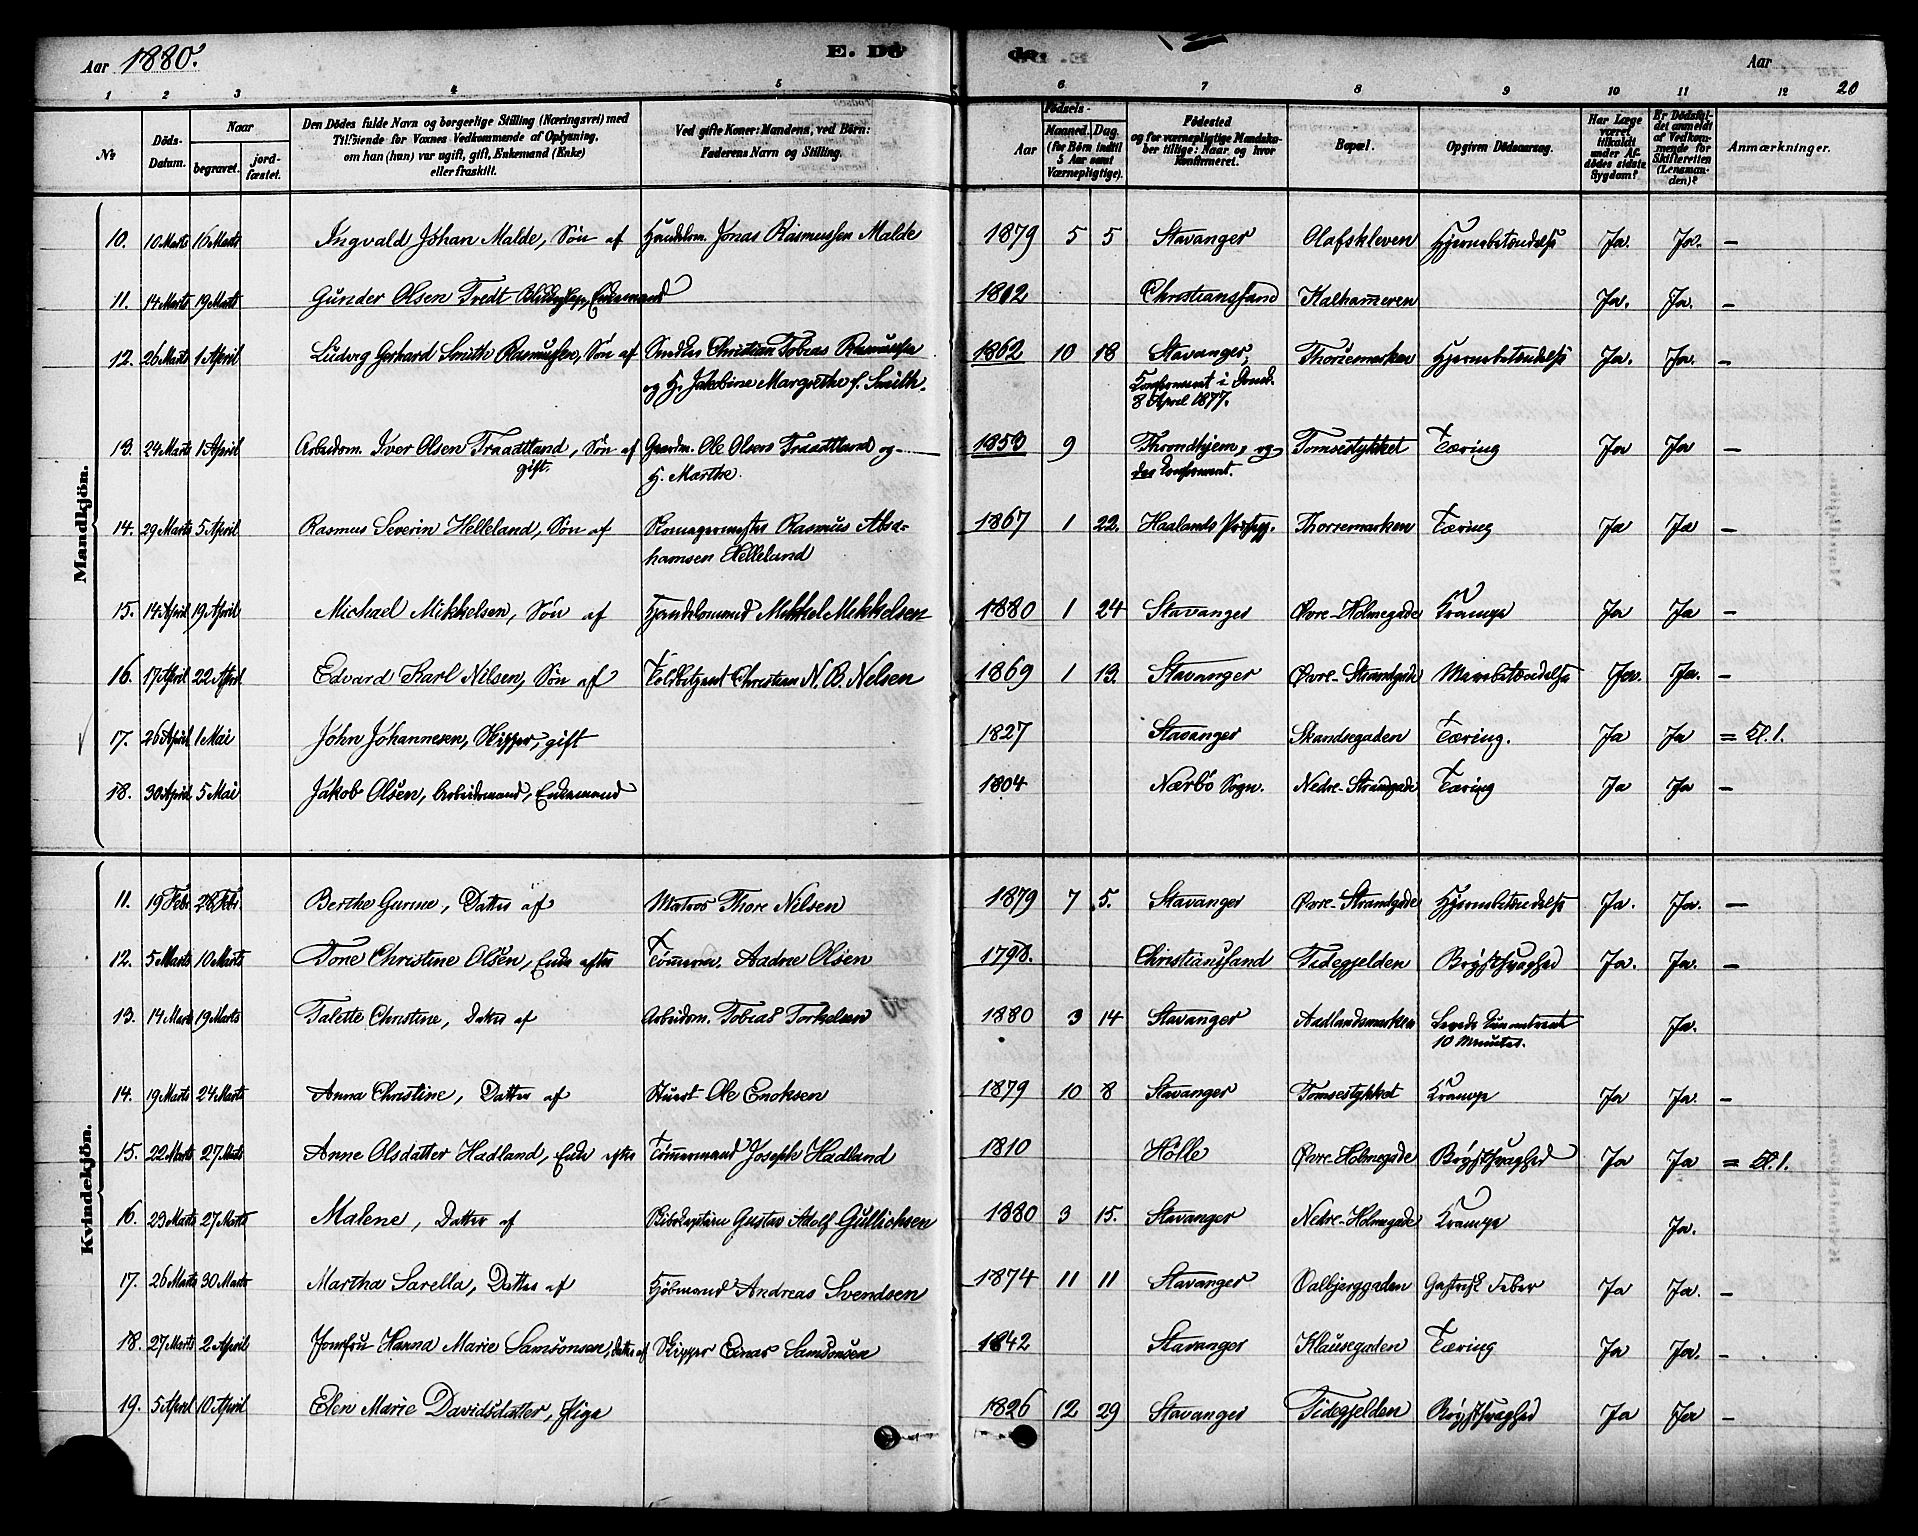 Aar 1880. E. Dö de. Aar 20
1 2 3 4 5 6 7 8 9 10 11 12
№
Döds-Datum.
Naar
begravet.
jordfæstet.
Den Dödes fulde Navn og borgerlige Stilling (Næringsvei) med
Tilföiende for Voxnes Vedkommende af Oplysning,
om han (hun) var ugift, gift, Enkemand (Enke)
eller fraskilt.
Ved gifte Koner: Mandens, ved Börn:
Faderens Navn og Stilling.
Födsels-
Aar
Maaned. Dag.
(for Börn indtil
5 Aar samt
Værnepligtige).
Födested
og for værnepligtige Mandskaber tillige: Naar og hvor
Konfirmeret.
Bopæl.
Opgiven Dödsaarsag.
Har Læge
været
tilkaldt
under Afdödes sidste
Sygdom?
Er Dödsfaldet anmeldt
af Vedkommende for
Skifteretten
(Lensmanden)?
Anmærkninger.
Mandkjön.
10. 10 Marts 16 Marts Ingvald Johan Malde, Sön af Handelsm. Jonas Rasmussen Malde 1879 5 5 Stavanger Olafskleven Hjernebetændelse Ja. Ja. –
11. 14 Marts 19 Marts Gunder Olsen Tredt Enkemand 1812 Christianssand Kalhameren Ja. Ja. –
12. 26 Marts 1 April Ludvig Gerhard Smith Rasmussen, Sön af Snedker Christian Tobias Rasmussen 1862 10 18 Stavanger, Thorsemarken Hjernebetændelse Ja. Ja. –
og H. Jakobine Margrethe f. Smith. Konfirmeret i Domk.
8 April 1877.
13. 24 Marts 1 April Arbeidsm. Iver Olsen Traadtland, Sön af Gaardm. Ole Olsen Traadtland og 1853 9 Throndhjem, og Tomsestykket Tæring Ja Ja –
gift H. Marthe. der konfirmeret.
14. 29 Marts 5 April Rasmus Severin Helleland, Sön af Rasmus Abra- 1867 1 22. Haalands Thorsemarken Tæring Ja Ja –
hamsen Helleland
15. 14 April 19 April Michael Mikkelsen, Sön af Handelsmand Mikkel Mikkelsen 1880 1 24 Stavanger Øvre-Holmegade Krampe Ja Ja –
16. 17 April 22 April Edvard Karl Nilsen, Sön af Toldbetjent Christian N. B. Nelsen 1869 1 13. Stavanger Øvre-Strandgade Ja. Ja. –
17. 26 April 1 Mai John Johannesen, Skipper, gift 1827 Stavanger Skandsegaden Tæring. Ja Ja = Kl. 1.
18. 30 April 5 Mai Jakob Olsen, Arbeidsmand, Enkemand 1804 Nærbö Sogn. Nedre-Strandgade Tæring Ja Ja –
Kvindekjön.
11. 19 Febr 28 Febr Berthe Gurine, Datter af Matros Thore Nelsen 1879 7 5. Stavanger Øvre-Strandgade Hjernebetændelse Ja. Ja. –
12. 5 Marts 10 Marts Tone Christine Olsen, Enke efter Tömmerm. Aadne Olsen 1798. Christianssand Tidegjelden Brystsvaghed Ja. Ja. –
13. 14 Marts 19 Marts Talette Christine, Datter af Arbeidsm. Tobias Torkelsen 1880 3 14 Stavanger Aadlandsmarken Levede kun omtrent Ja.
10 Minuter.
14. 19 Marts 24 Marts Anna Christine, Datter af Ole Enoksen 1879 10 8 Stavanger Tomsestykket Krampe Ja Ja. –
15. 22 Marts 27 Marts Anne Olsdatter Hadland, Enke efter Tömmermand Joseph Hadland 1810 Hölle Øvre-Holmegade Brystsvaghed Ja Ja = Kl. 1.
16. 23 Marts 27 Marts Malene, Datter af Gustav Adolf Gullichsen 1880 3 15. Stavanger Nedre-Holmegade Krampe Ja.
17. 26 Marts 30 Marts Martha Sarella, Datter af Kjöbmand Andreas Svendsen 1874 11 11 Stavanger Valbjerggaden Gastrisk Feber Ja Ja. –
18. 27 Marts 2 April Jomfru Hanna Marie Samsonsen, Datter af Skipper Einar Samsonsen 1842 Stavanger Klausegaden Tæring Ja Ja. –
19. 5 April 10 April Elen Marie Davidsdatter, Pige 1826 12 29 Stavanger Tidegjelden Brystsvaghed Ja Ja –